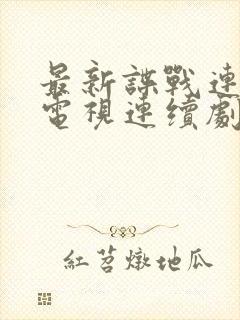 最新諜戰連
電視連續劇
紅苕燉地瓜